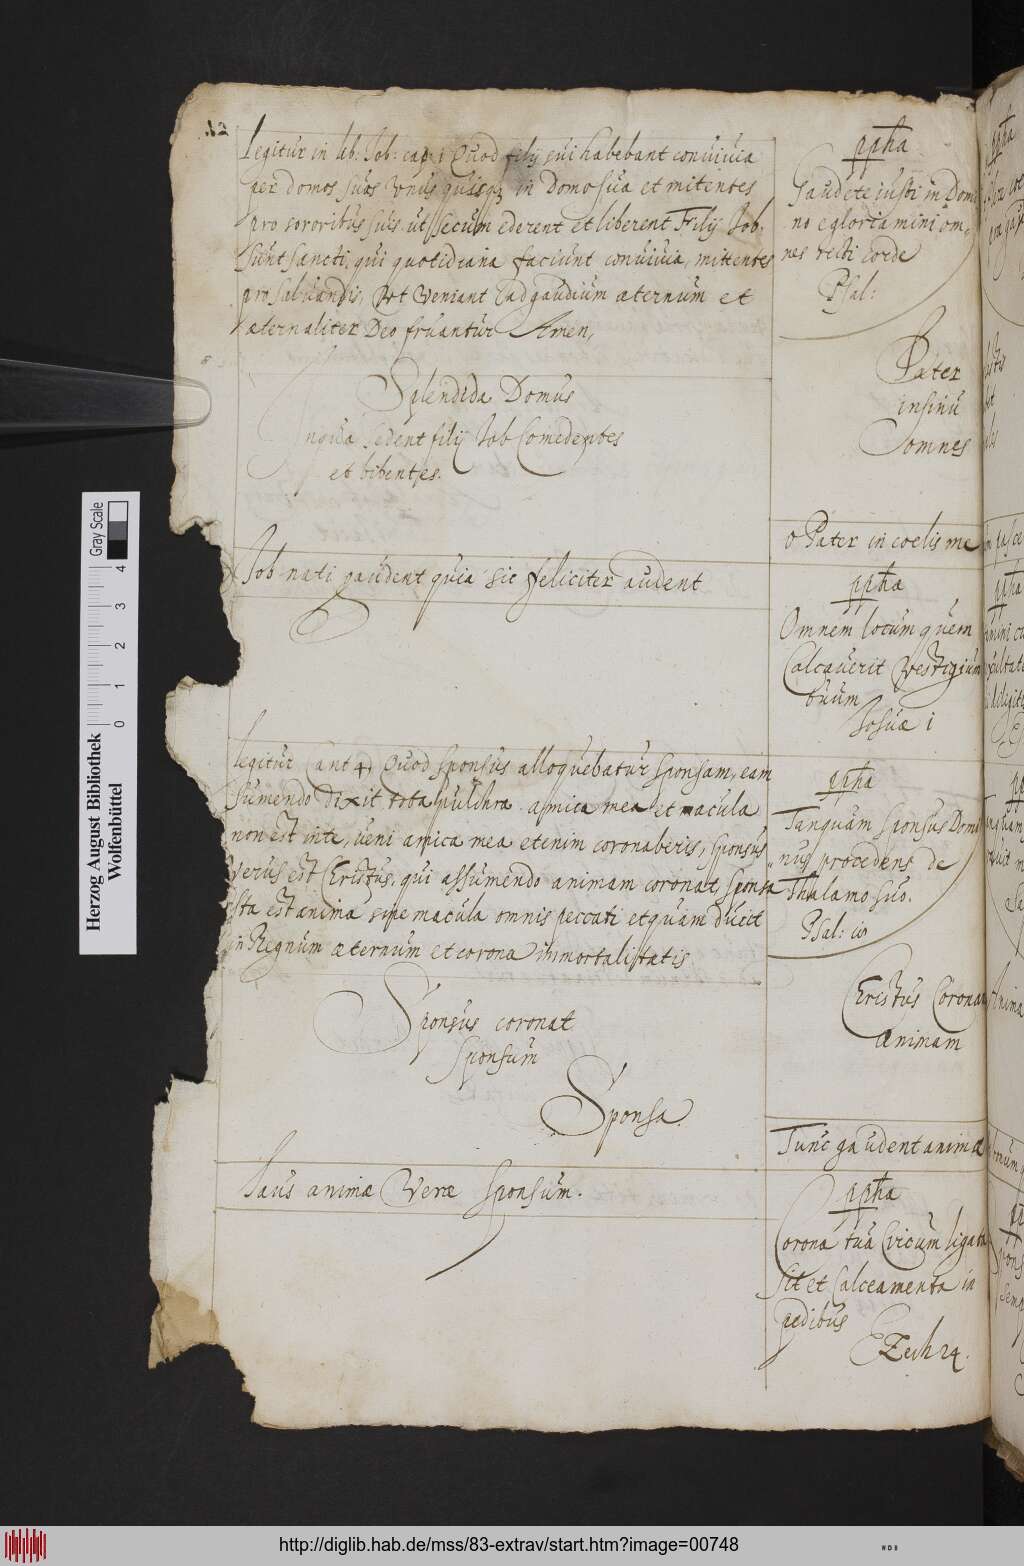 12
Legitur in lib: Job: cap: 1 Quod filij sui habebant conuiuia
per domos suas unus quisq3 in Domo sua et mitentes
pro sororibus suis ut secum ederent et biberent Filij Job.
sunt sancti, qui quotidiana faciunt conuiuia, mittentes
pro saluandis, Vt Veniant ad gaudium æternum et
æternaliter Deo fruantur Amen,
Splendida Domus
In qua sedent filij Job Comedentes
et bibentes.
Job nati gaudent quia sic feliciter audent
legitur Cant 4, Quod Sponsus alloquebatur sponsam, eam
sumendo dixit tota pulchra amica mea et macula
non est in te, ueni amica mea etenim coronaberis, sponsus
Verus est Christus, qui assumendo animam coronat, sponsa
ista est anima sine macula omnis peccati et quam ducit
in Regnum æternum et corona immortalitatis
Sponsus coronat
Sponsum
Sponsa.
Laus animæ Veræ Sponsum.
ppha
Gaudete iusti in Domi
no e gloriamini om,
nes recti corde
Psal:
Pater
in sinu
omnes
o Pater in coelis me
ppha
Omnem locum quem
Calcauerit Vestigium
tuum
Iosuæ i
ppha
Tanquam sponsus Domi
nus procedens de
Thalamo suo.
Psal:
Christus Coronam
Animam
Tunc gaudent animæ
ppha
Corona tua Circum ligata
sit et Calceamenta in
pedibus
Ezech 24.
Herzog August Bibliothek
Wolfenbüttel
0 1 2 3 4
Gray Scale
http://diglib.hab.de/mss/83-extrav/start.htm?image=00748
WDB